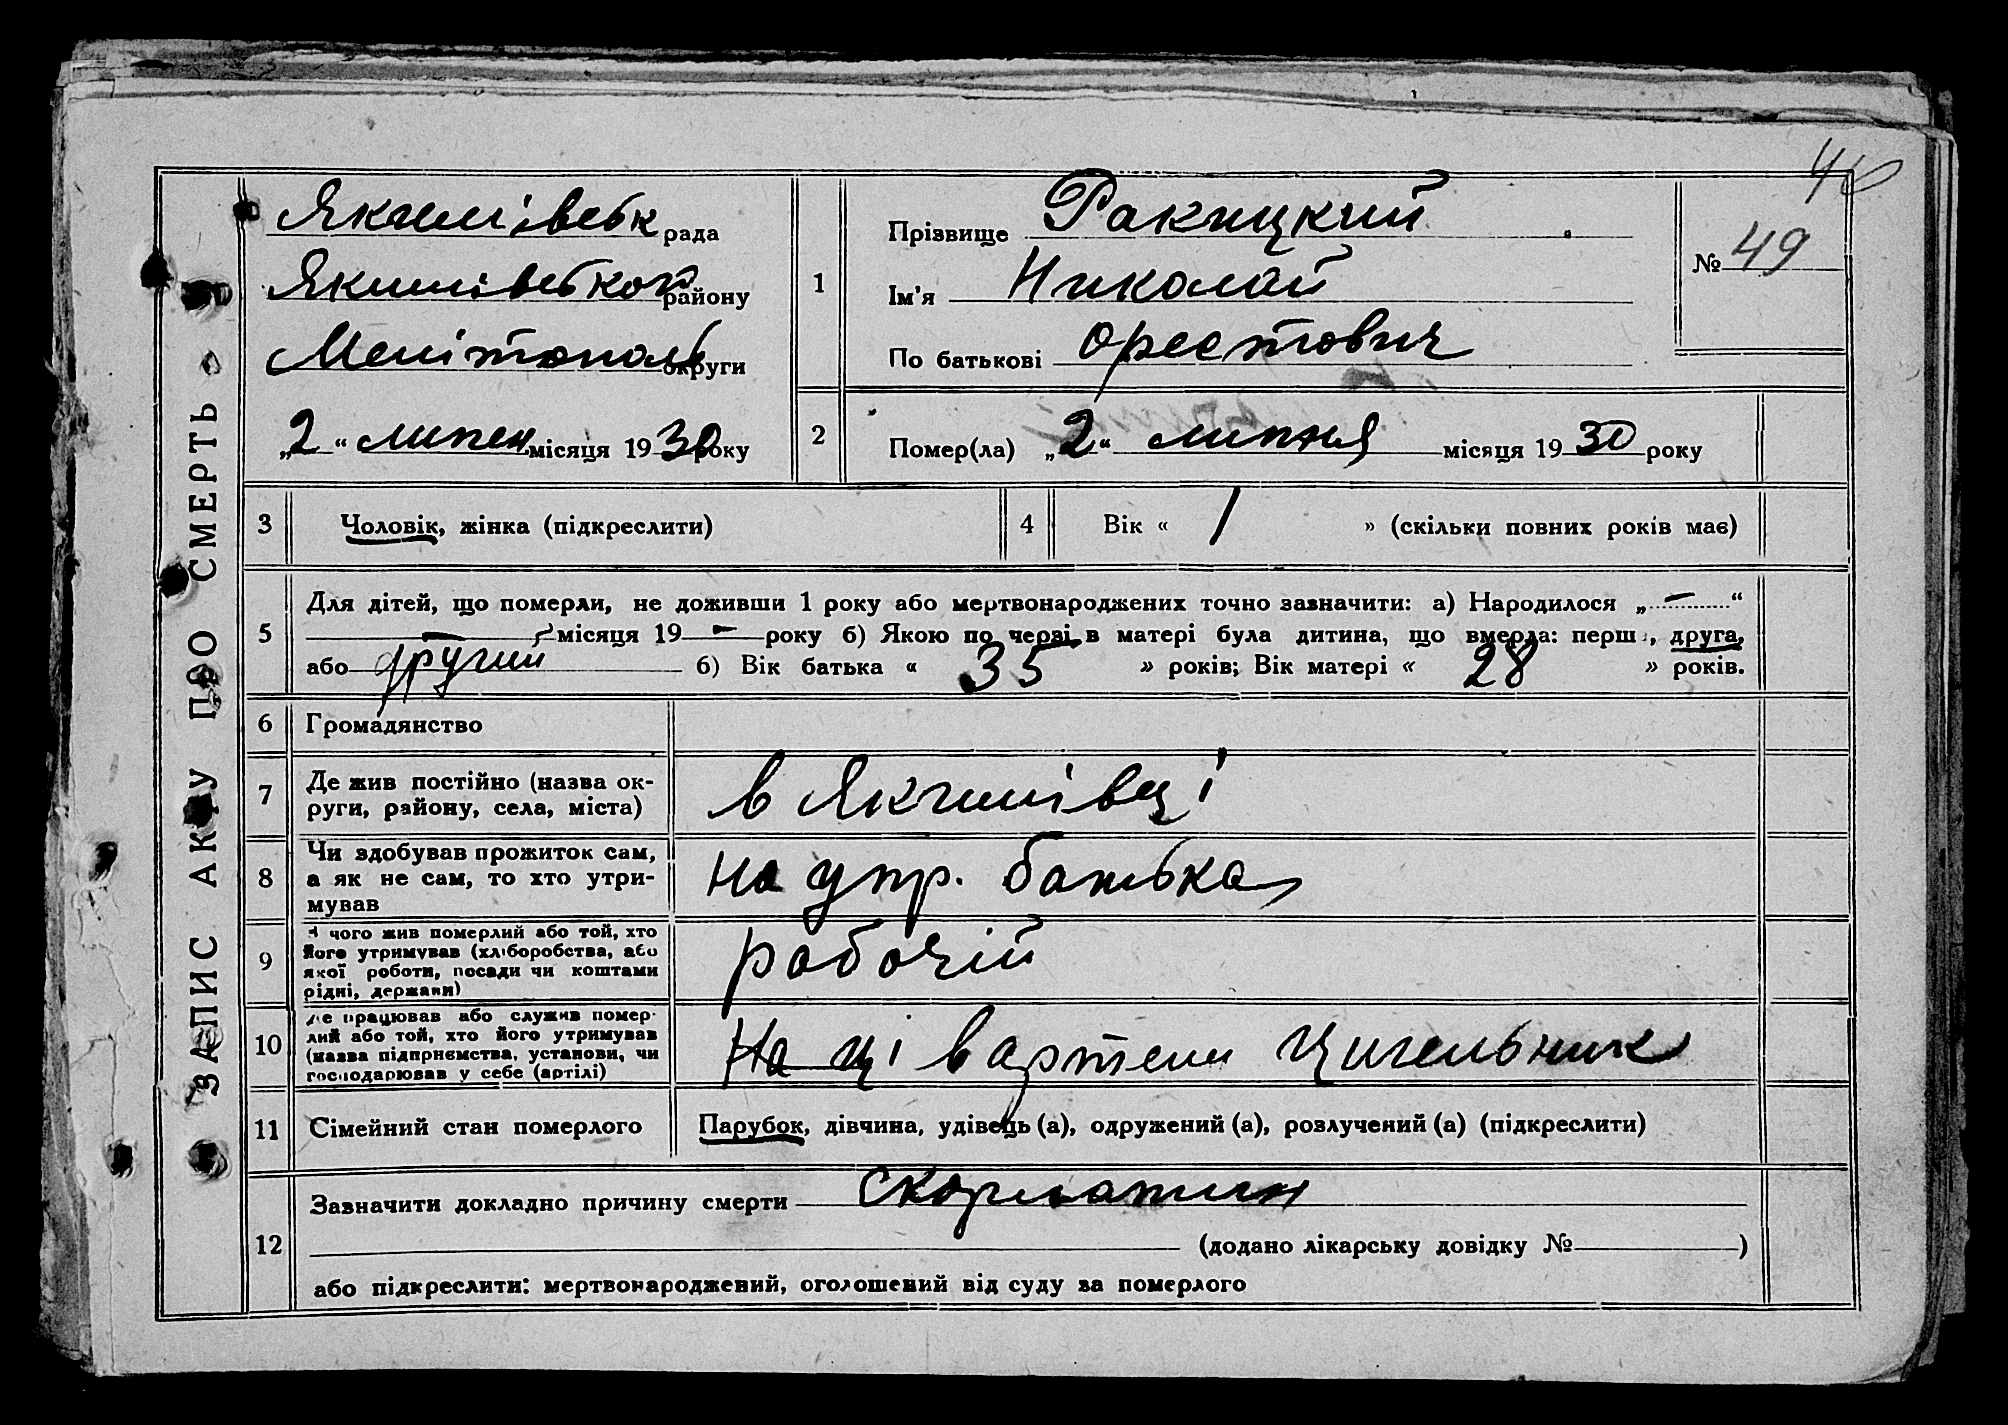 ЗАПИС АКТУ ПРО СМЕРТЬ
40
Якимівськ рада
Якимівськой району
Мелітополь округи
„2“ липен місяця 1930 року
1
Прізвище Ракицкий
Ім'я Николай
По батькові Орестович
№ 49
2
Помер(ла) „2“ липня місяця 1930 року
3 Чоловік, жінка (підкреслити)
4 Вік « 1 » (скільки повних років має)
5
Для дітей, що померли, не доживши 1 року або мертвонароджених точно зазначити: а) Народилося „—“
— місяця 19 — року б) Якою по черзі в матері була дитина, що вмерла: перш, друга,
або другий б) Вік батька « 35 » років; Вік матері « 28 » років.
6 Громадянство
7
Де жив постійно (назва ок-
руги, району, села, міста)
в Якимівці
8
Чи здобував прожиток сам,
а як не сам, то хто утри-
мував
на утр. батька
9
З чого жив померлий або той, хто
його утримував (хліборобства, або
якої роботи, посади чи коштами
рідні, держави)
рабочій
10
Де працював або служив помер-
лий або той, хто його утримував
(назва підприємства, установи, чи
господарював у себе (артілі)
На ці в артели Цигельник
11 Сімейний стан померлого
Парубок, дівчина, удівець (а), одружений (а), розлучений (а) (підкреслити)
12
Зазначити докладно причину смерти скарлатин
(додано лікарську довідку № )
або підкреслити: мертвонароджений, оголошений від суду за померлого